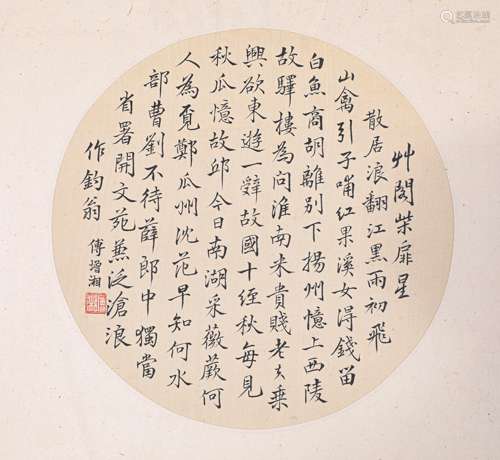 艸閣柴扉星
散居浪翻江黑雨初飛
山禽引子哺红果溪女得錢留
白魚商胡離别下揚州憶上西陵
故驛樓為问淮南米貴賤老夫乗
興欲東遊一辤故國十經秋每見
秋瓜憶故邱今日南湖采薇蕨何
人為覓鄭瓜州沈范早知何水
部曹劉不待薛郎中獨當
省署開文苑兼泛滄浪
作釣翁
傅增湘